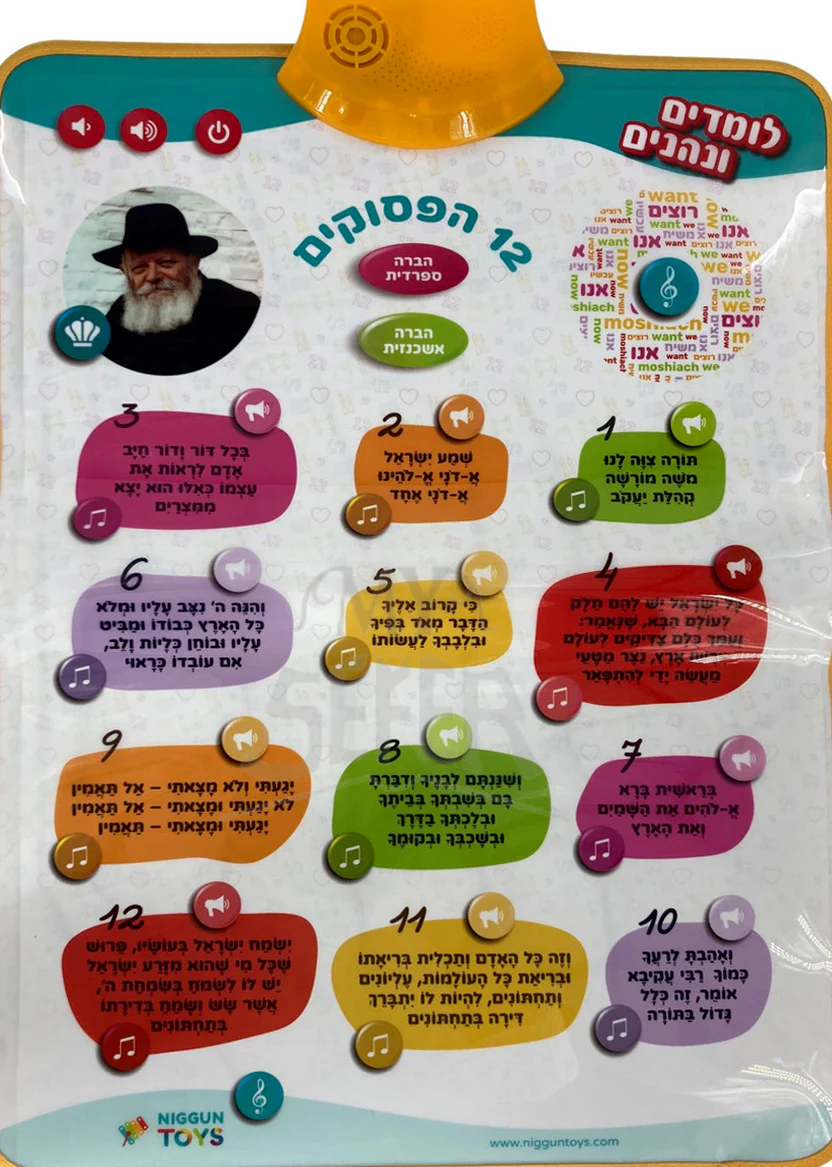 לומדים
ונהנים
12 הפסוקים
הברה
ספרדית
הברה
אשכנזית
want
רוצים
אנו
want
we
now
moshiach
moshiach we
1
תּוֹרָה צִוָּה לָנוּ
מֹשֶׁה מוֹרָשָׁה
קְהִלַּת יַעֲקֹב
2
שְׁמַע יִשְׂרָאֵל
אֲ-דֹנָי אֱ-לֹהֵינוּ
אֲ-דֹנָי אֶחָד
3
בְּכָל דּוֹר וָדוֹר חַיָּב
אָדָם לִרְאוֹת אֶת
עַצְמוֹ כְּאִלּוּ הוּא יָצָא
מִמִּצְרַיִם
4
כָּל יִשְׂרָאֵל יֵשׁ לָהֶם חֵלֶק
לְעוֹלָם הַבָּא, שֶׁנֶּאֱמַר:
וְעַמֵּךְ כֻּלָּם צַדִּיקִים לְעוֹלָם
אָרֶץ, נֵצֶר מַטָּעַי
מַעֲשֵׂה יָדַי לְהִתְפָּאֵר
5
כִּי קָרוֹב אֵלֶיךָ
הַדָּבָר מְאֹד בְּפִיךָ
וּבִלְבָבְךָ לַעֲשׂוֹתוֹ
6
וְהִנֵּה ה' נִצָּב עָלָיו וּמְלֹא
כָּל הָאָרֶץ כְּבוֹדוֹ וּמַבִּיט
עָלָיו וּבוֹחֵן כְּלָיוֹת וָלֵב,
אִם עוֹבְדוֹ כָּרָאוּי
7
בְּרֵאשִׁית בָּרָא
אֱ-לֹהִים אֵת הַשָּׁמַיִם
וְאֵת הָאָרֶץ
8
וְשִׁנַּנְתָּם לְבָנֶיךָ וְדִבַּרְתָּ
בָּם בְּשִׁבְתְּךָ בְּבֵיתֶךָ
וּבְלֶכְתְּךָ בַדֶּרֶךְ
וּבְשָׁכְבְּךָ וּבְקוּמֶךָ
9
יָגַעְתִּי וְלֹא מָצָאתִי – אַל תַּאֲמִין
לֹא יָגַעְתִּי וּמָצָאתִי – אַל תַּאֲמִין
יָגַעְתִּי וּמָצָאתִי – תַּאֲמִין
10
וְאָהַבְתָּ לְרֵעֲךָ
כָּמוֹךָ רַבִּי עֲקִיבָא
אוֹמֵר, זֶה כְּלָל
גָּדוֹל בַּתּוֹרָה
11
וְזֶה כָּל הָאָדָם וְתַכְלִית בְּרִיאָתוֹ
וּבְרִיאַת כָּל הָעוֹלָמוֹת, עֶלְיוֹנִים
וְתַחְתּוֹנִים, לִהְיוֹת לוֹ יִתְבָּרֵךְ
דִּירָה בְּתַחְתּוֹנִים
12
יִשְׂמַח יִשְׂרָאֵל בְּעוֹשָׂיו, פֵּרוּשׁ
שֶׁכָּל מִי שֶׁהוּא מִזֶּרַע יִשְׂרָאֵל
יֵשׁ לוֹ לִשְׂמֹחַ בְּשִׂמְחַת ה',
אֲשֶׁר שָׂשׂ וְשָׂמֵחַ בְּדִירָתוֹ
בְּתַחְתּוֹנִים
MY
SEFER
NIGGUN
TOYS
www.nigguntoys.com